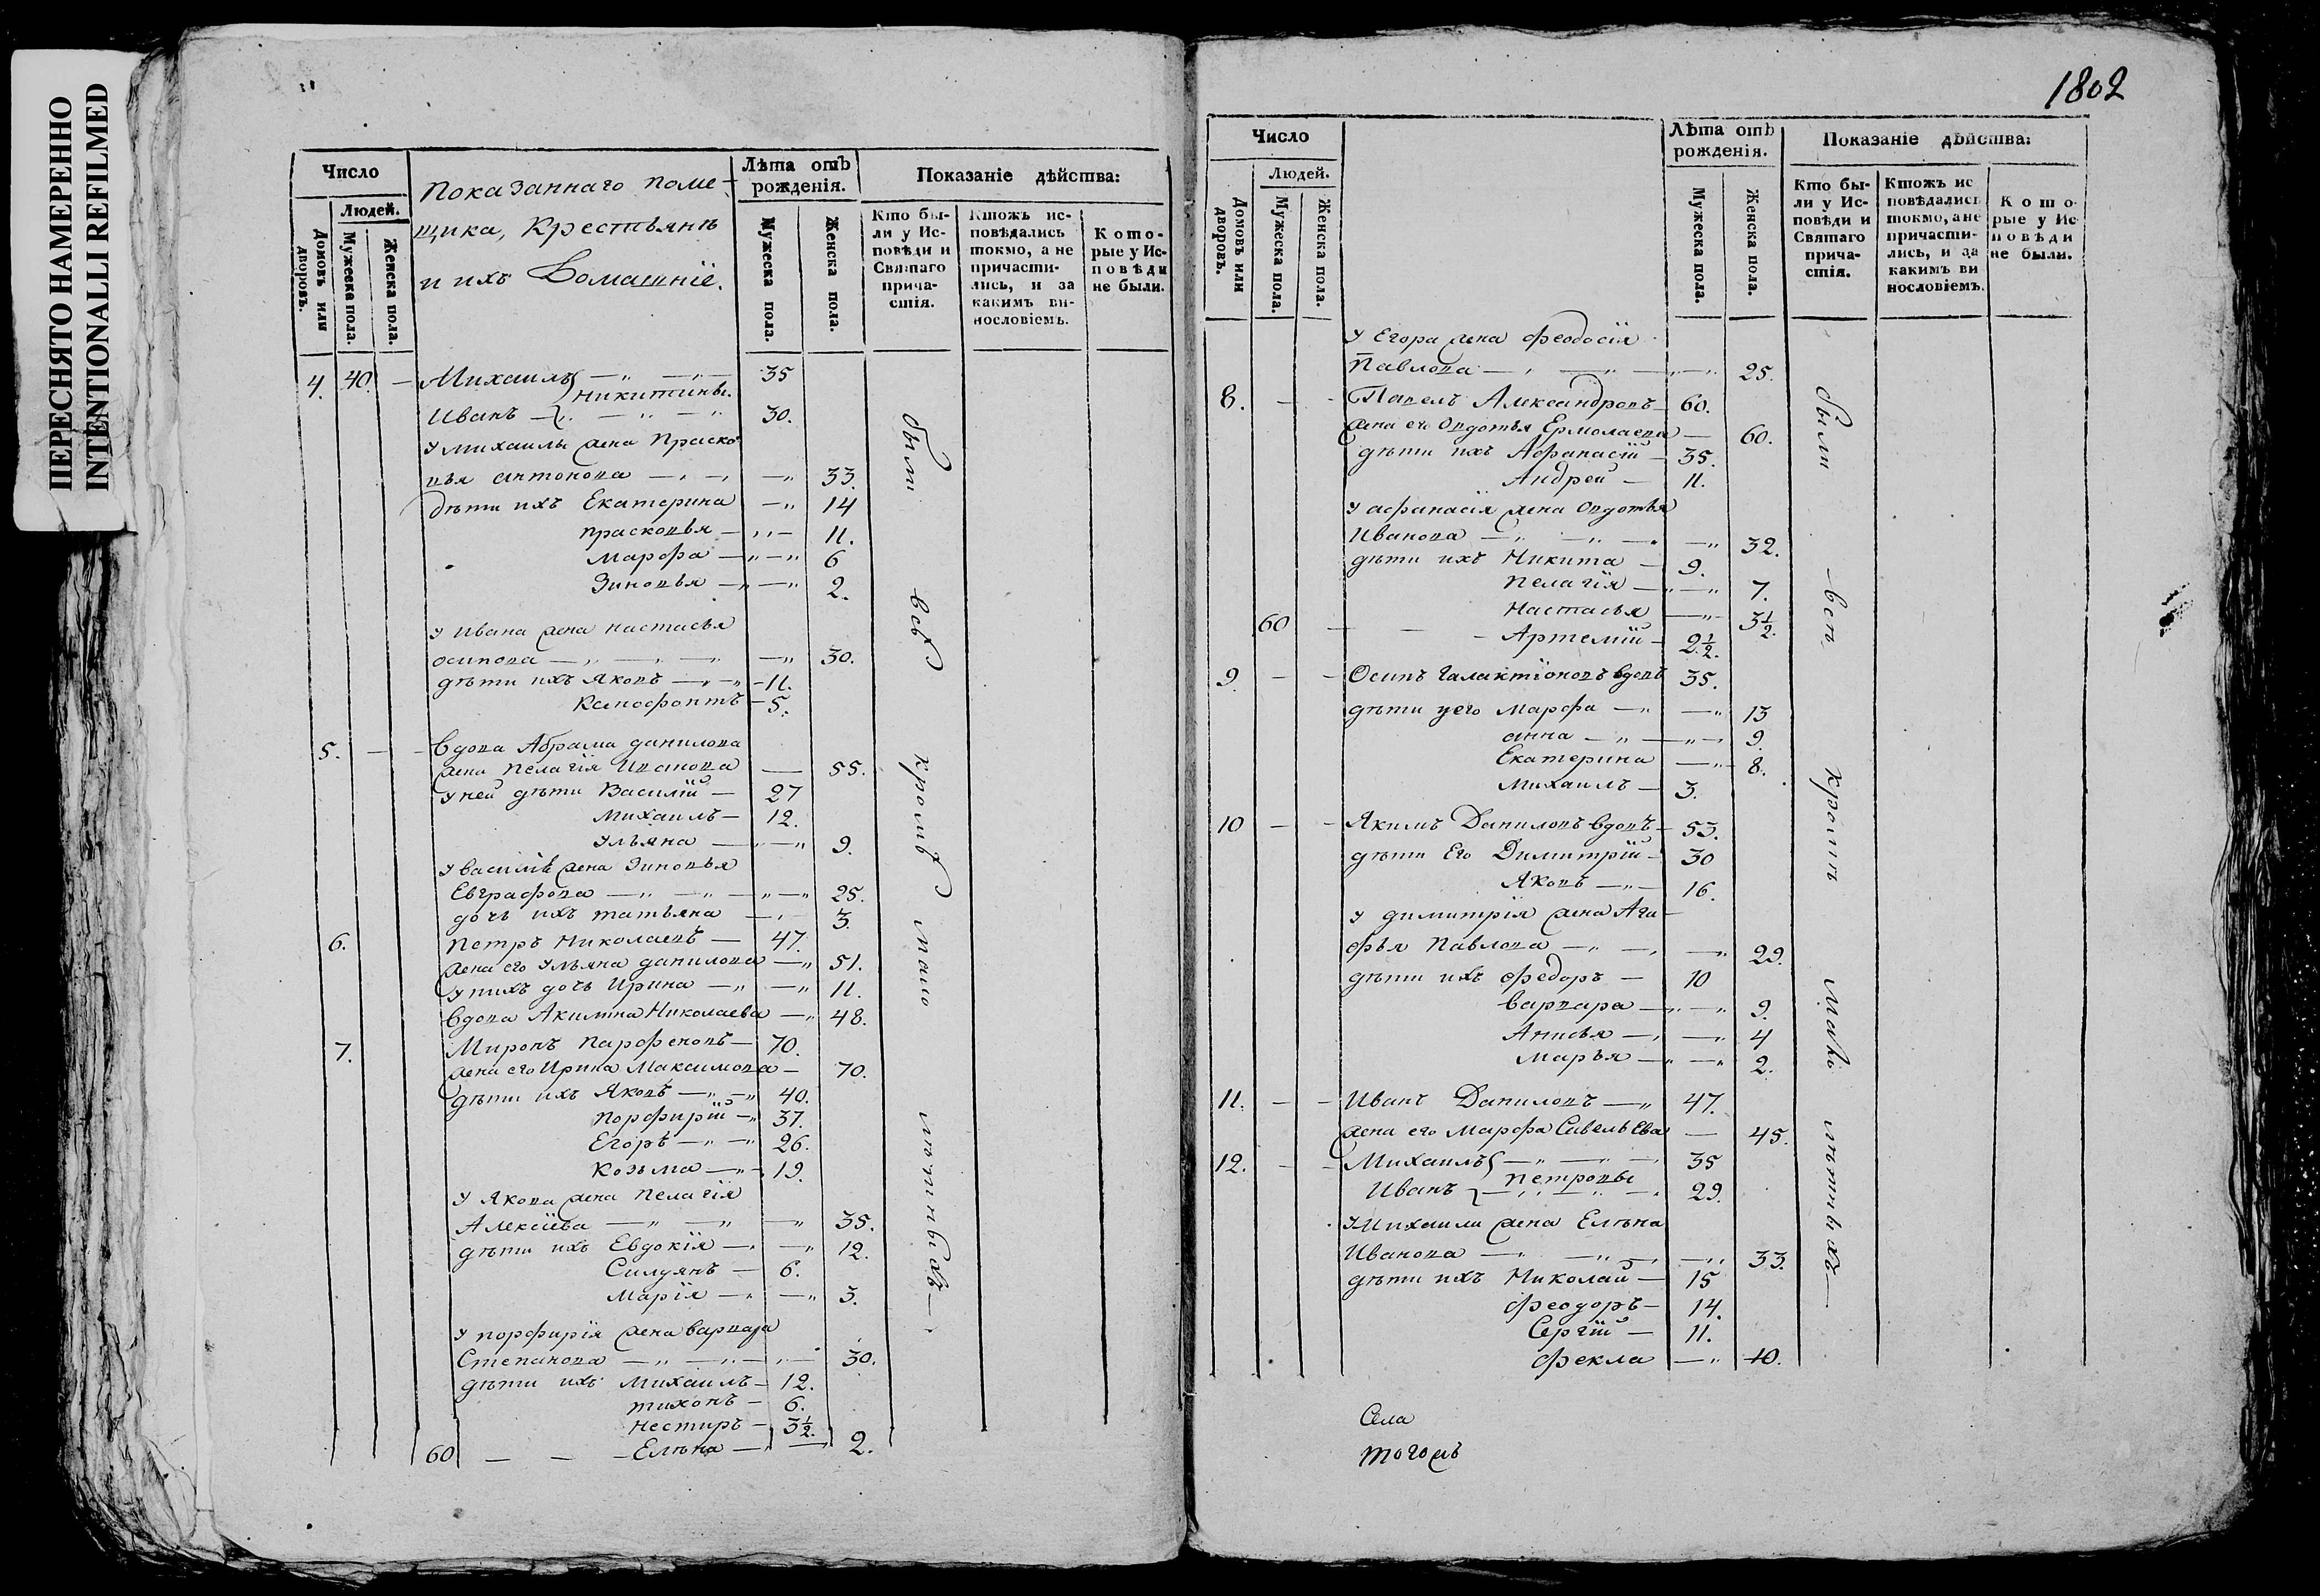 ПЕРЕСНЯТО НАМЕРЕННО
INTENTIONALLI REFILMED
Число
Людей.
Домовъ или дворовъ.
Мужеска пола.
Женска пола.
Показаннаго поме-
щика, Крестьянъ
и ихъ Домашніе.
Лѣта отъ рожденія.
Мужеска пола.
Женска пола.
Показаніе дѣйства:
Кто бы-
ли у Ис-
повѣди и
Святаго
прича-
стія.
Ктожъ ис-
повѣдались
токмо, а не
причасти-
лись, и за
какимъ ви-
нословіемъ.
Кото-
рые у Ис-
повѣди
не были.
4. 40. — Михаилъ — 35
Никитины.
Иванъ — 30.
У михаилы жена Праско
вья антонова — 33.
дѣти ихъ Екатерина — 14
прасковья — 11.
Марфа — 6
Зиновья — 2.
У Ивана жена настасья
осипова — 30.
дѣти ихъ Яковъ — 11.
Ксенофонтъ — 5.
5. — Вдова Абрама данилова
жена пелагія Иванова — 55.
У ней дѣти Василій — 27
Михаилъ — 12.
Ульяна — 9.
У василіѣ жена Зиновья
Евграфова — 25.
дочь ихъ татьяна — 3.
6. Петръ Николаевъ — 47.
жена его Ульяна данилова — 51.
У нихъ дочь Ирина — 11.
Вдова Акилина Николаева — 48.
7. Миронъ Парфеновъ — 70.
жена его Ирина Максимова — 70.
дѣти ихъ Яковъ — 40.
Порфирій — 37.
Егоръ — 26.
Козьма — 19.
У Якова жена Пелагія
Алексіева — 35.
дѣти ихъ Евдокія — 12.
Силуянъ — 6.
Марія — 3.
У порфирія жена варвара
Степанова — 30.
дѣти ихъ Михаилъ — 12.
тихонъ — 6.
Нестиръ — 3½.
60 — — — Елѣна — 2.
были всѣ кромѣ мало лѣтныхъ —
1802
Число
Людей.
Домовъ или дворовъ.
Мужеска пола.
Женска пола.
Лѣта отъ рожденія.
Мужеска пола.
Женска пола.
Показаніе дѣйства:
Кто бы-
ли у Ис-
повѣди и
Святаго
прича-
стія.
Ктожъ ис
повѣдались
токмо, ане
причасти-
лись, и за
какимъ ви
нословіемъ.
Кото-
рые у Ис
повѣди
не были.
У Егора жена феодосія
Павлова — 25.
8. — Павелъ Александровъ — 60.
жена его Овдотья Ермолаева — 60.
дѣти ихъ Афанасій — 35.
Андрей — 11.
У афанасія жена Овдотья
Иванова — 32.
дѣти ихъ Никита — 9.
Пелагія — 7.
Настасья — 3½.
60 — — — Артемій — 2½.
9. — Осипъ Галактіоновъ вдовъ 35.
дѣти у его Марфа — 13
анна — 9.
Екатерина — 8.
Михаилъ — 3.
10 — Якимъ Даниловъ вдовъ — 53.
дѣти Его Димитрій — 30
Яковъ — 16.
У димитрія жена Ага-
фья Павлова — 29.
дѣти ихъ федоръ — 10
варвара — 9.
Анисья — 4
Марья — 2.
11. — Иванъ Даниловъ — 47.
жена его Марфа Савельева — 45.
12. — Михаилъ — 35
Петровы
Иванъ — 29.
У Михаили жена Елѣна
Иванова — 33.
дѣти ихъ Николай — 15
феодоръ — 14.
Сергій — 11.
фекла — 10.
были всѣ кромѣ малъ лѣтныхъ —
Села
тогожъ